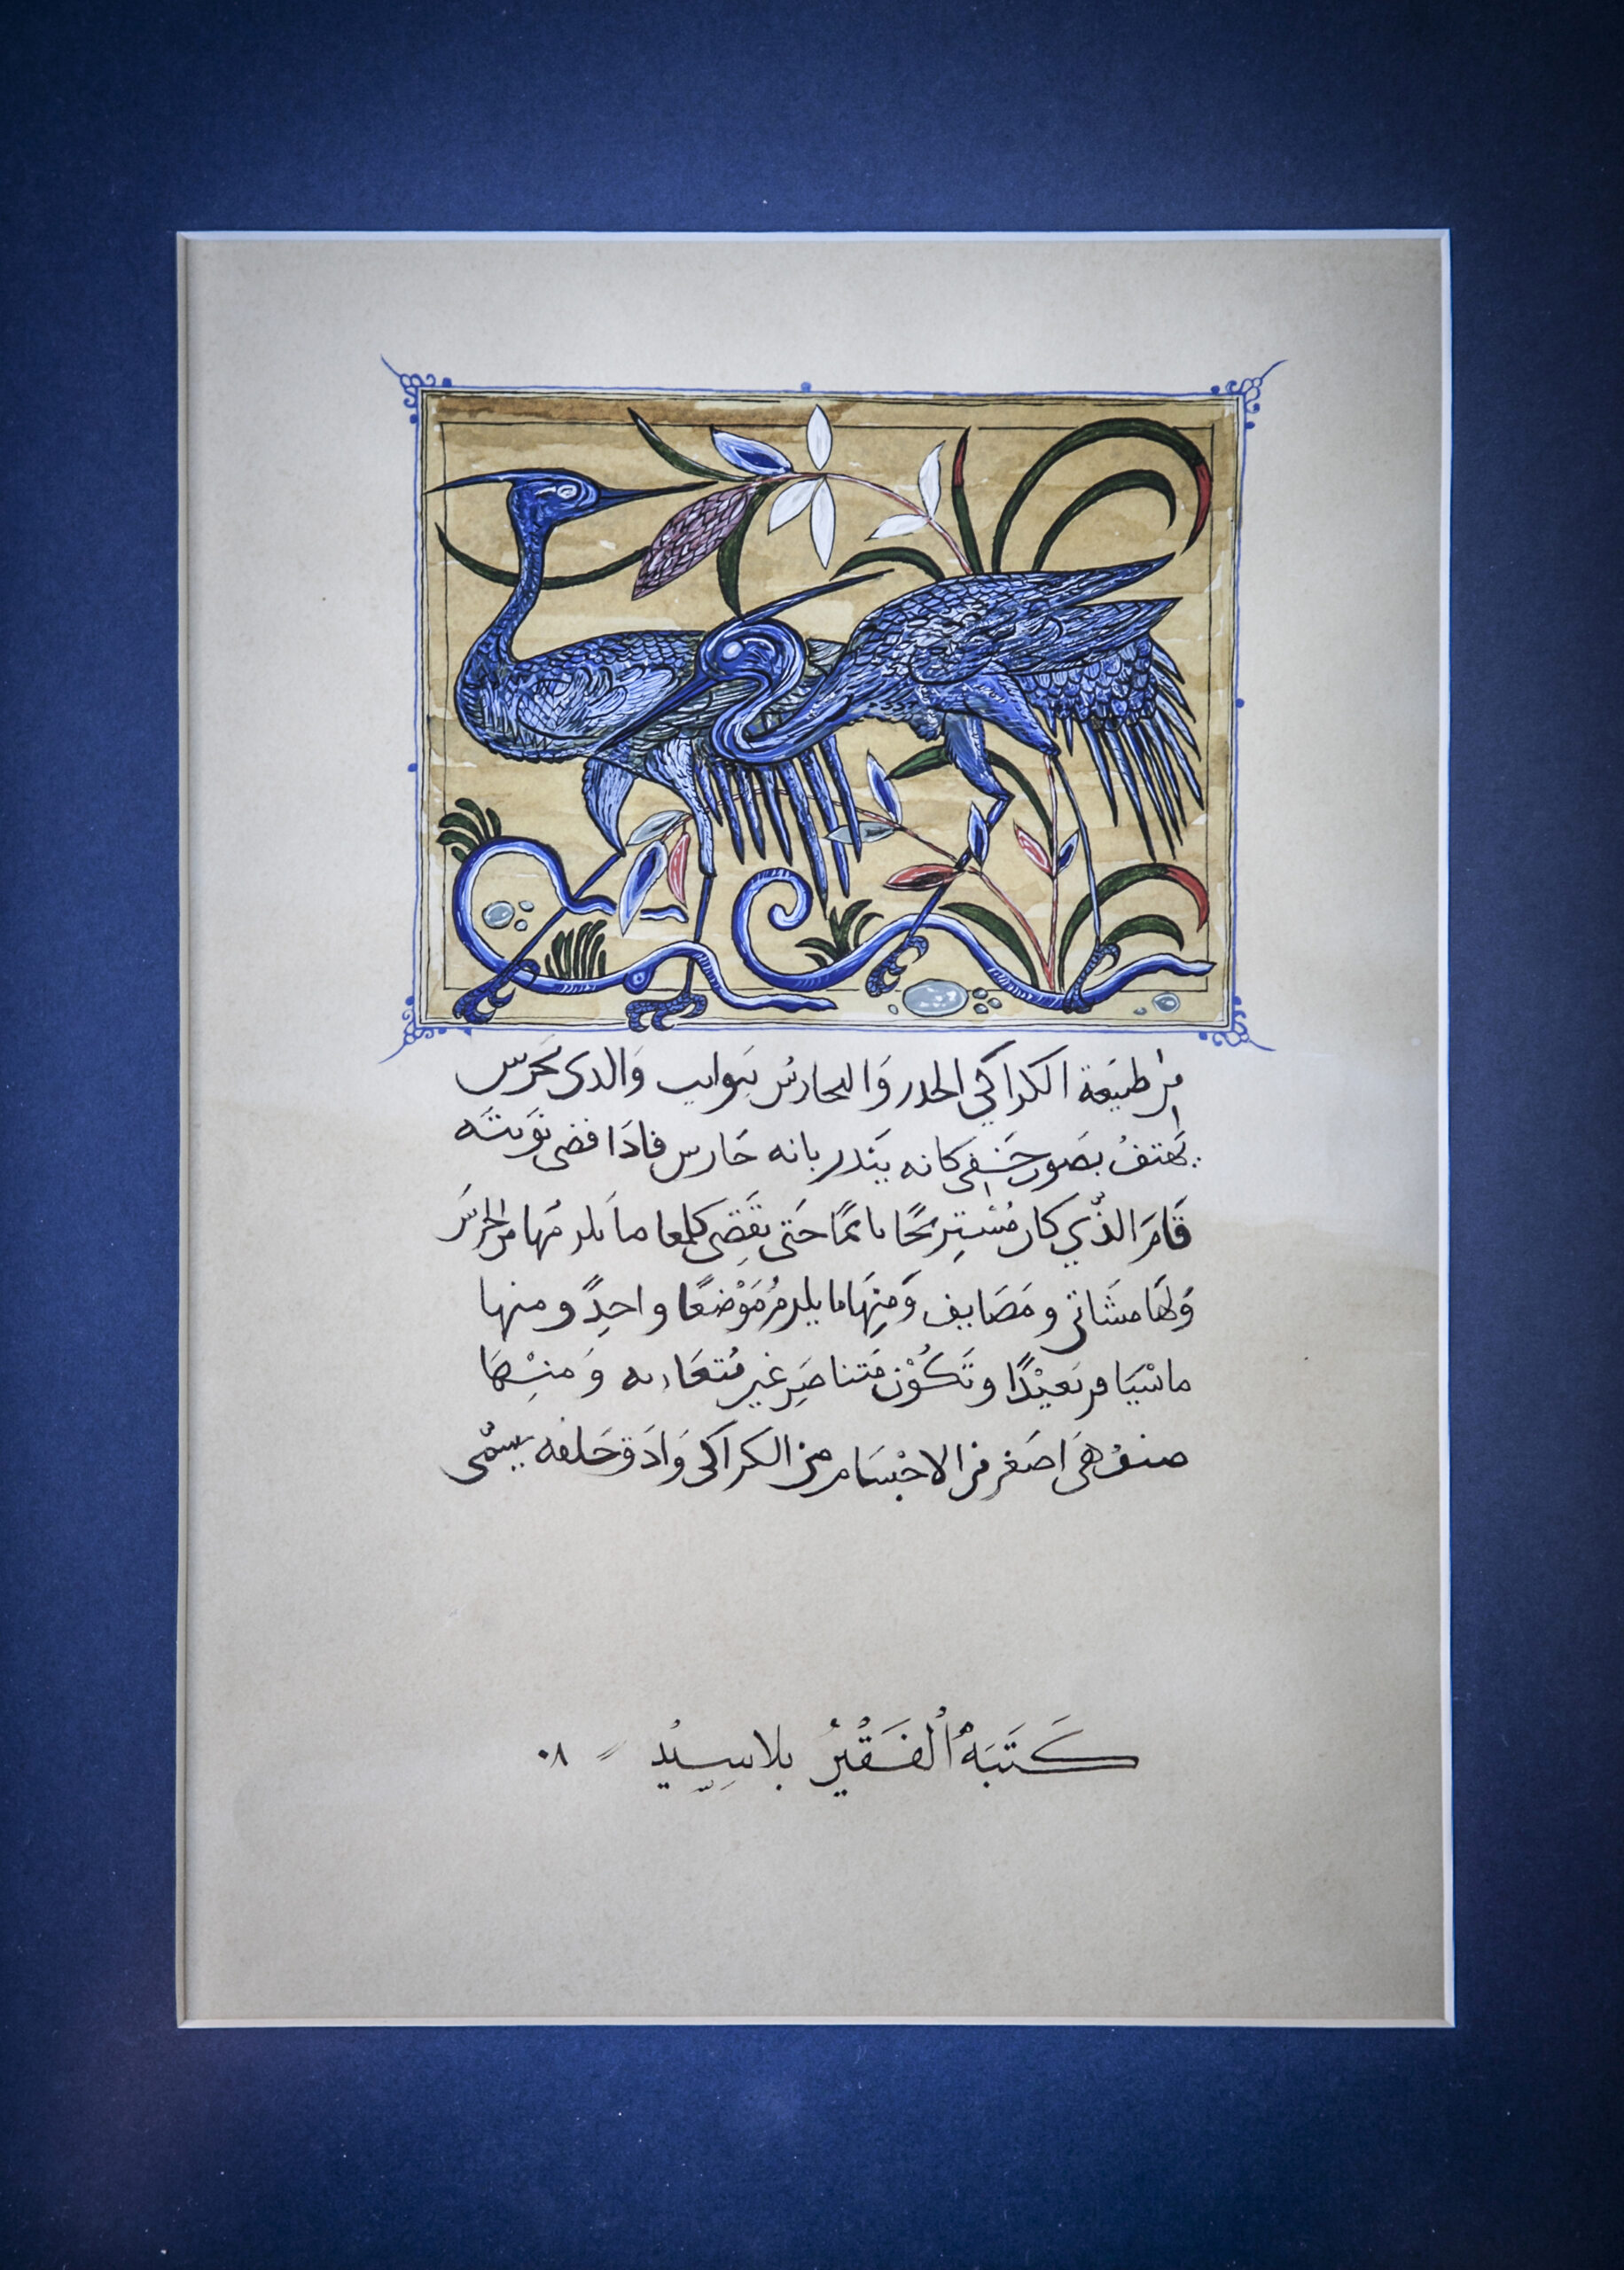 من طبيعة الكراكي الحدر وَالتحارسُ بنوايب وَالدى يَحرس
يَهتفُ بصَوت خَفِي كانه يَندر بانه حَارس فادَا قضى نوَبتَه
قَامَ الذّي كان مُسْتِريحًا نائمًا حَتى يقَضِى كلها ما يلزمها من الحرسَ
وَلهَا مشَاتى ومَصَايف وَمنِهَا ما يلزمُ مَوْضعًا واحدِ ومنها
ما سْيَافر بَعيْدًا وتَكُوْن مَتناصَرِ غير مُتعَاديه وَمنْهَا
صنفُ هىَ اصَغر من الاجْسَام من الكراكى وَادَق خَلفه يسمّى
كَتَبَهُ ٱلْفَقْيُر بلاسِيْد = ٠٨